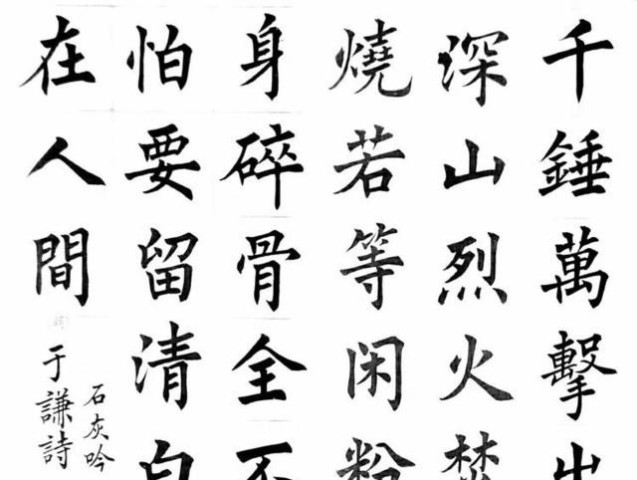 千錘萬擊出
深山烈火焚
燒若等闲粉
身碎骨全不
怕要留清白
在人間
石灰吟
于謙詩